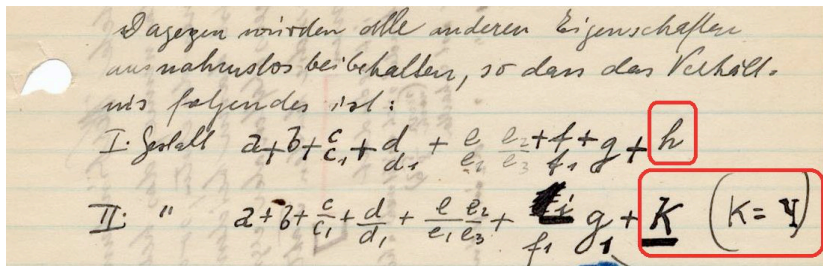 Dagegen würden alle anderen Eigenschaften
ausnahmslos beibehalten, so dass das Verhält-
nis folgendes ist:
I. Gestalt a+b+c/c₁+d/d₁ + e/e₁ e₂/e₃+f/f₁+g+h
II. " a+b+c/c₁+d/d₁ + e/e₁ e₂/e₃+ f₁ g₁+K (K=Ч)